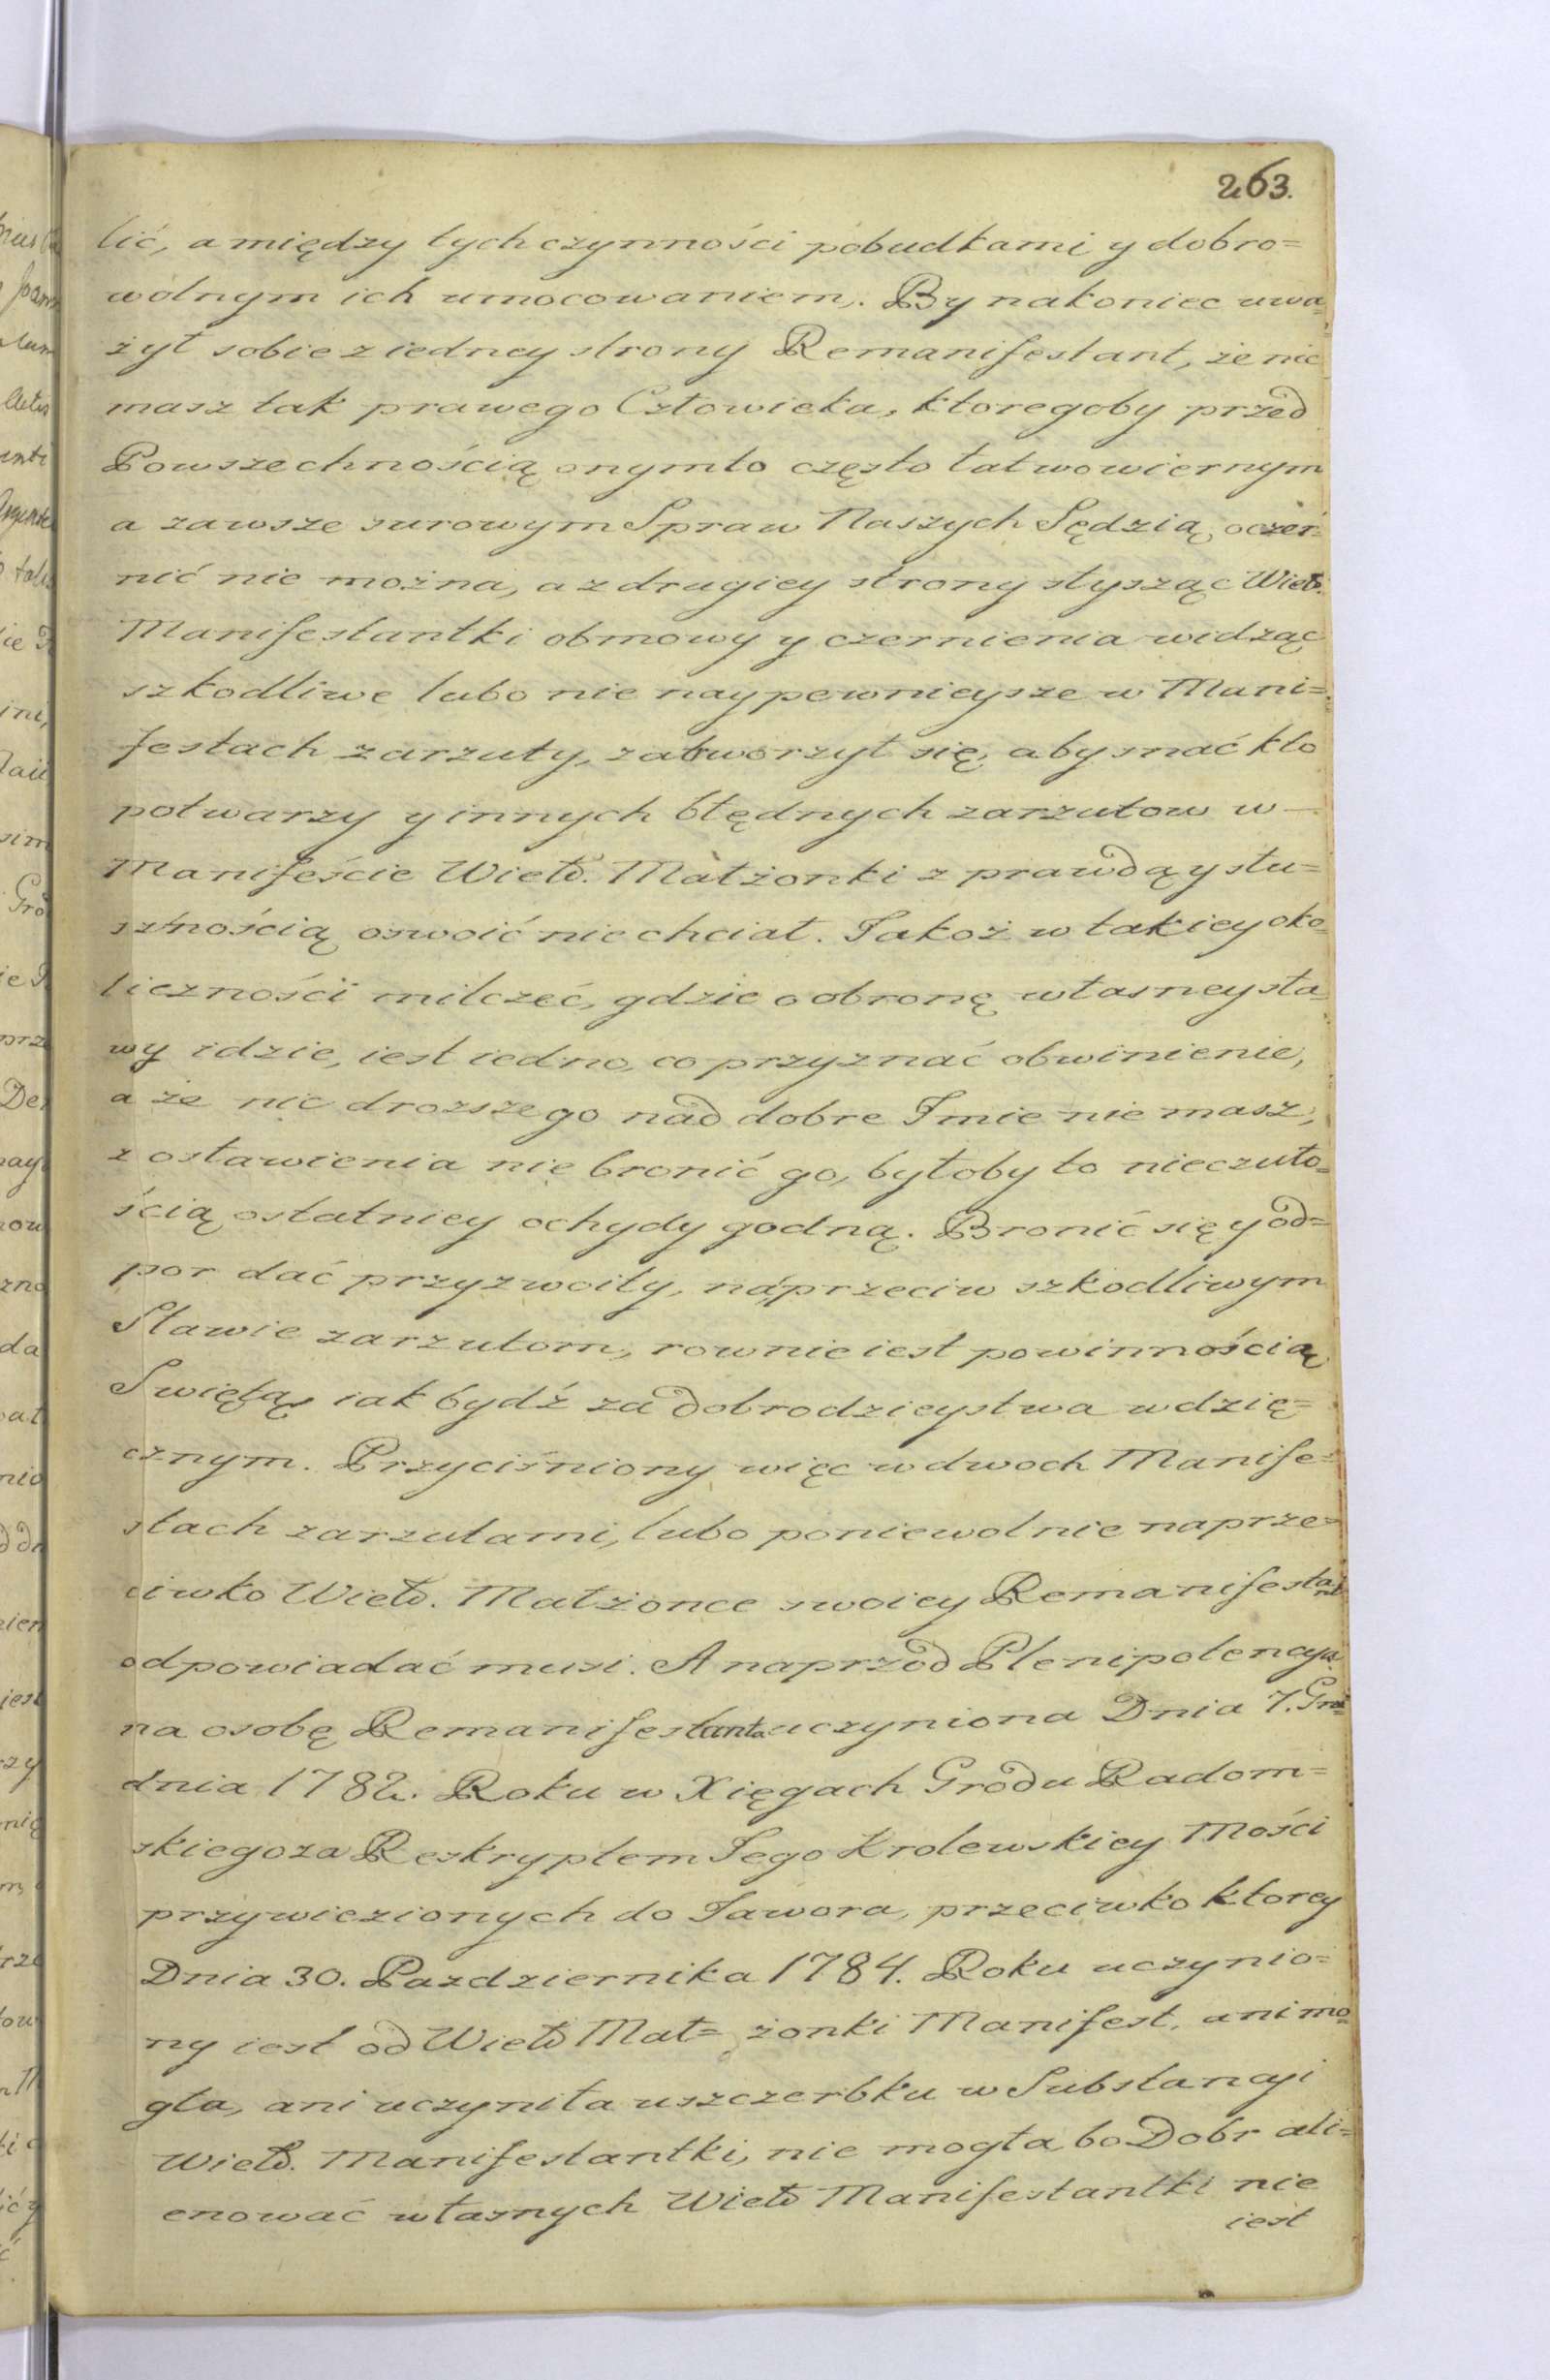 263.
lić, a między tych czynności pobudkami y dobro=
wolnym ich umocowaniem. By nakoniec uwa=
żył sobie z iedney strony Remanifestant, że nie
masz tak prawego Człowieka, ktoregoby przed
Powszechnością onymto często łatwowiernym
a zawsze surowym Spraw Naszych Sędzią, oczer=
nić nie można, a z drugiey strony słysząc Wielo.
Manifestantki obmowy y czernienia widząc
szkodliwe lubo nie naypewnieysze w Mani=
festach zarzuty, zatworzył się, aby snać kto
potwarzy y innych błędnych zarzutow w —
Manifeście Wielo. Małżonki z prawdą y słu=
sznością oswoić nie chciał. Jakoż w takiey oko=
liczności milczeć, gdzie o obronę własney sła
wy idzie, iest iedno, co przyznać obwinienie,
a że nic droższego nad dobre Jmie nie masz,
zostawienia nie bronić go, byłoby to nieczuło=
ścią ostatniey ochydy godną. Bronić się y od=
por dać przyzwoity, naprzeciw szkodliwym
Sławie zarzutom, rownie iest powinnością
Swiętą, iak bydź za dobrodzieystwa wdzię=
cznym. Przyciśniony więc w dwoch Manife=
stach zarzutami, lubo poniewolnie naprze=
ciwko Wielo. Małżonce swoiey Remanifestant
odpowiadać musi. A naprzod Plenipotencya
na osobę Remanifestanta uczyniona Dnia 7. Gru=
dnia 1782. Roku w Xięgach Grodu Radom=
skiego za Reskryptem Jego Krolewskiey Mości
przywiezionych do Jawora, przeciwko ktorey
Dnia 30. Pazdziernika 1784. Roku uczynio=
ny iest od Wielo Mał= żonki Manifest, ani mo=
gła, ani uczyniła uszczerbku w Substancyi
Wielo. Manifestantki, nie mogła bo Dobr ali=
enować własnych Wielo Manifestantki nie
iest